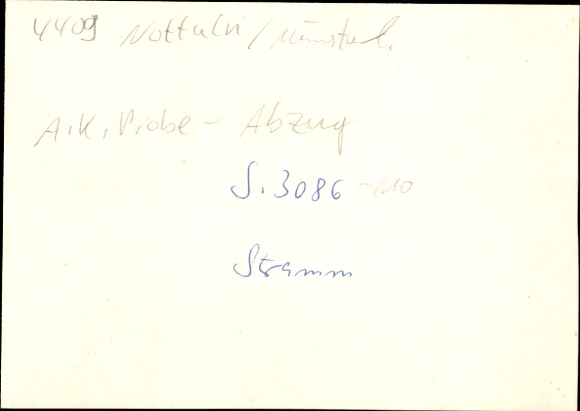 4409 Nottuln / Münsterl.
A.K. Probe - Abzug
S. 3086
Stramm